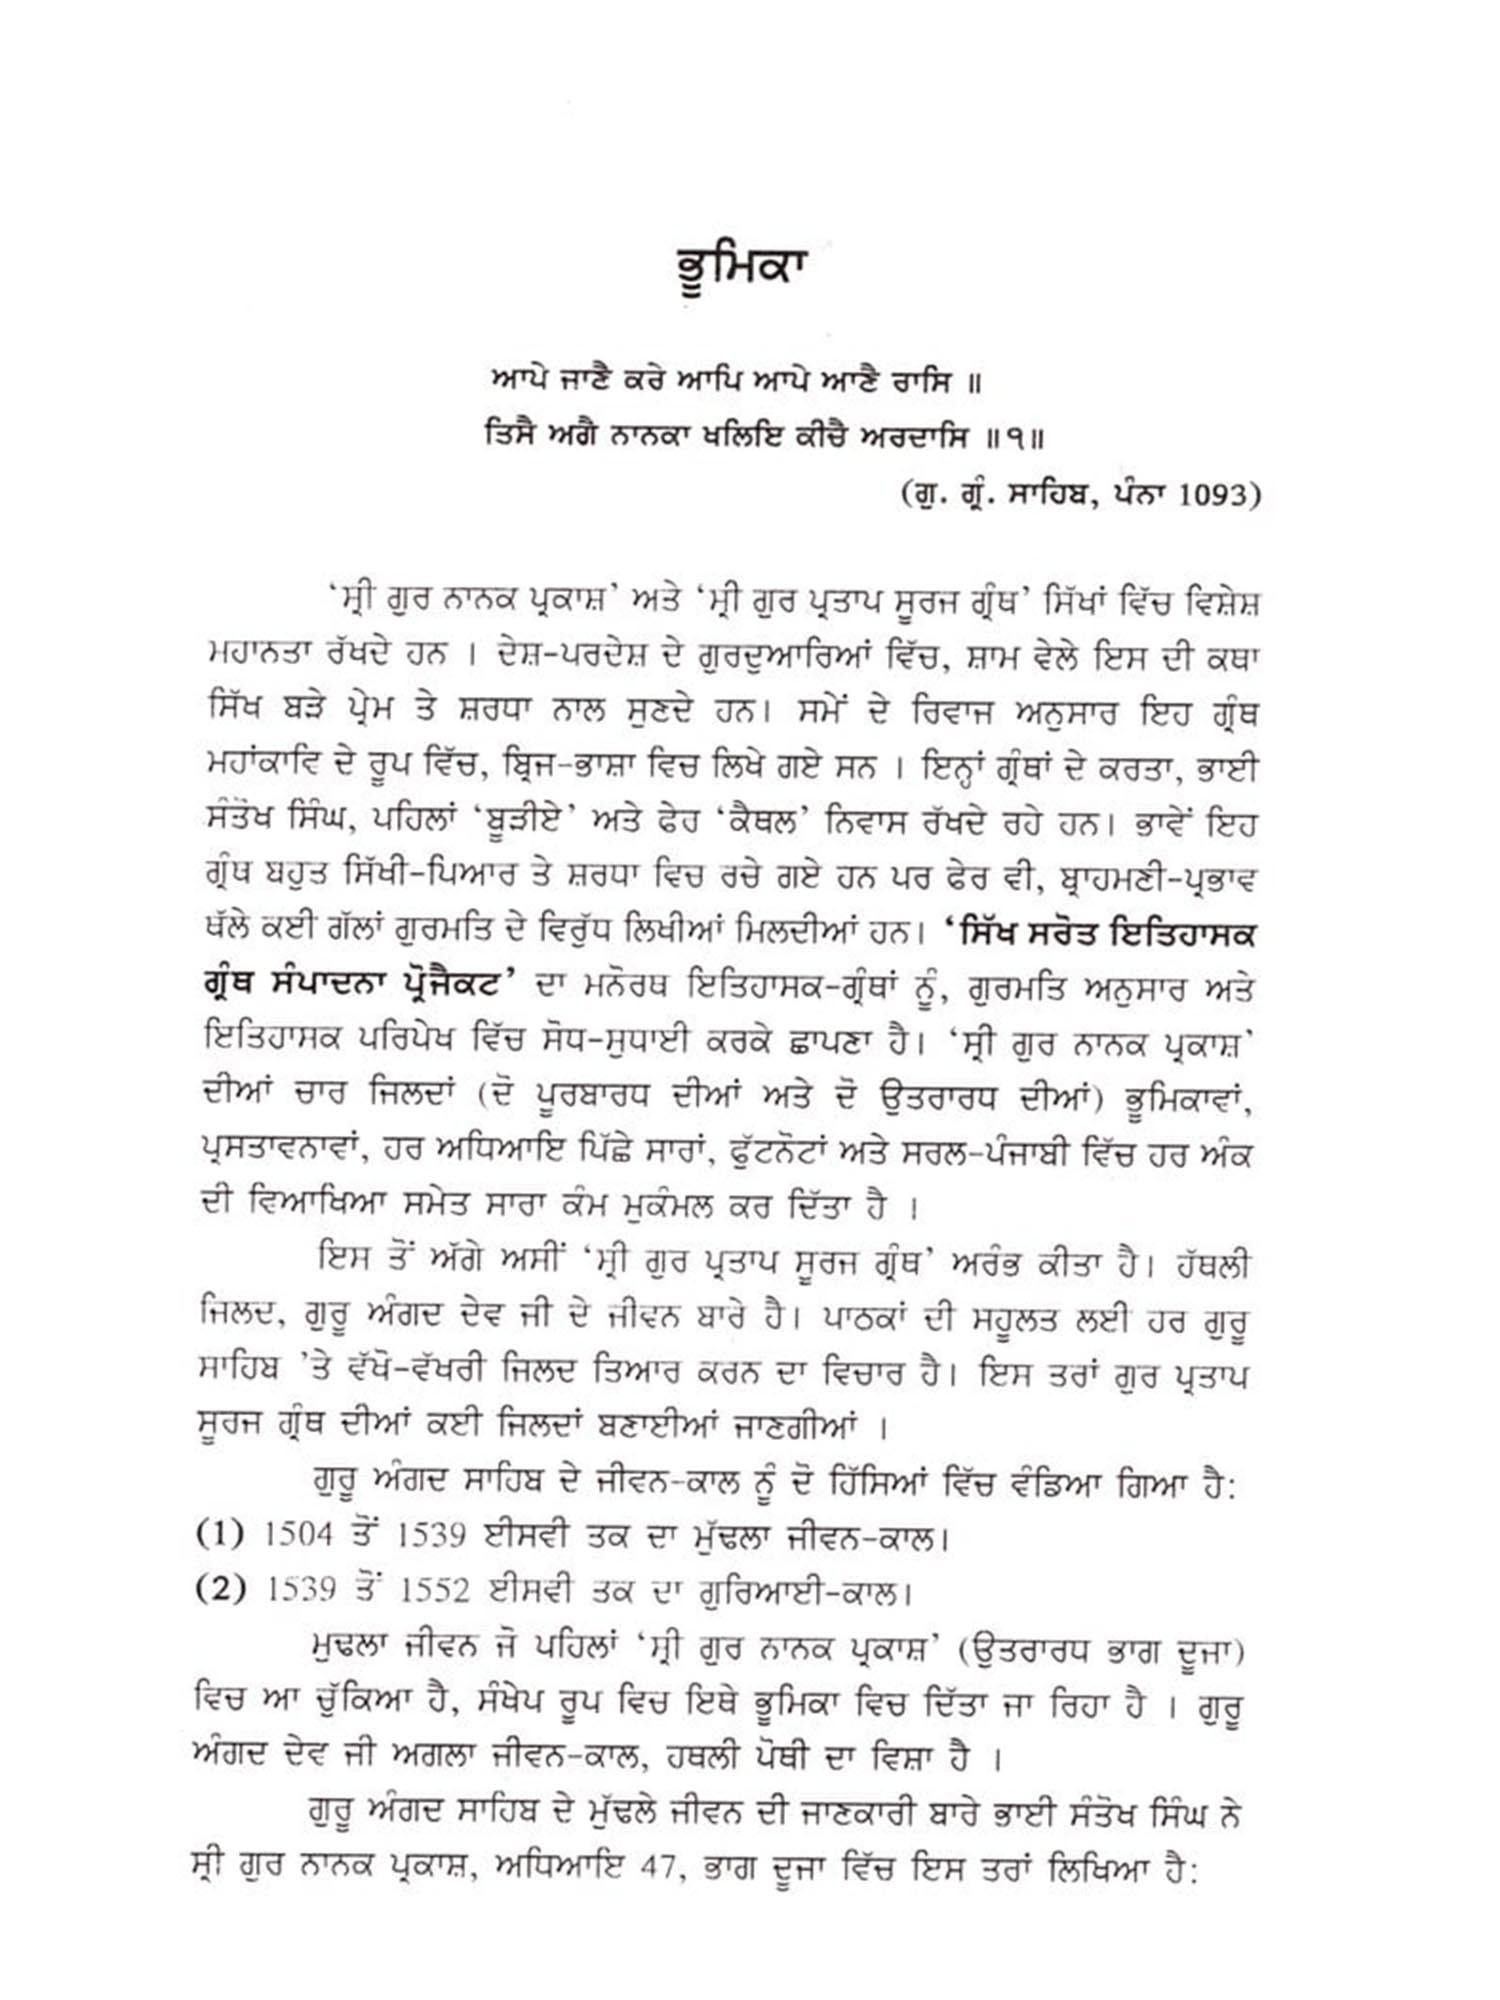 ਭੂਮਿਕਾ
ਆਪੇ ਜਾਣੈ ਕਰੇ ਆਪਿ ਆਪੇ ਆਣੈ ਰਾਸਿ ॥
ਤਿਸੈ ਅਗੈ ਨਾਨਕਾ ਖਲਿਇ ਕੀਚੈ ਅਰਦਾਸਿ ॥੧॥
(ਗੁ. ਗ੍ਰੰ. ਸਾਹਿਬ, ਪੰਨਾ 1093)
‘ਸ੍ਰੀ ਗੁਰ ਨਾਨਕ ਪ੍ਰਕਾਸ਼’ ਅਤੇ ‘ਸ੍ਰੀ ਗੁਰ ਪ੍ਰਤਾਪ ਸੂਰਜ ਗ੍ਰੰਥ’ ਸਿੱਖਾਂ ਵਿੱਚ ਵਿਸ਼ੇਸ਼
ਮਹਾਨਤਾ ਰੱਖਦੇ ਹਨ । ਦੇਸ਼-ਪਰਦੇਸ਼ ਦੇ ਗੁਰਦੁਆਰਿਆਂ ਵਿੱਚ, ਸ਼ਾਮ ਵੇਲੇ ਇਸ ਦੀ ਕਥਾ
ਸਿੱਖ ਬੜੇ ਪ੍ਰੇਮ ਤੇ ਸ਼ਰਧਾ ਨਾਲ ਸੁਣਦੇ ਹਨ। ਸਮੇਂ ਦੇ ਰਿਵਾਜ ਅਨੁਸਾਰ ਇਹ ਗ੍ਰੰਥ
ਮਹਾਂਕਾਵਿ ਦੇ ਰੂਪ ਵਿੱਚ, ਬ੍ਰਿਜ-ਭਾਸ਼ਾ ਵਿਚ ਲਿਖੇ ਗਏ ਸਨ । ਇਨ੍ਹਾਂ ਗ੍ਰੰਥਾਂ ਦੇ ਕਰਤਾ, ਭਾਈ
ਸੰਤੋਖ ਸਿੰਘ, ਪਹਿਲਾਂ ‘ਬੂੜੀਏ’ ਅਤੇ ਫੇਰ ‘ਕੈਥਲ’ ਨਿਵਾਸ ਰੱਖਦੇ ਰਹੇ ਹਨ। ਭਾਵੇਂ ਇਹ
ਗ੍ਰੰਥ ਬਹੁਤ ਸਿੱਖੀ-ਪਿਆਰ ਤੇ ਸ਼ਰਧਾ ਵਿਚ ਰਚੇ ਗਏ ਹਨ ਪਰ ਫੇਰ ਵੀ, ਬ੍ਰਾਹਮਣੀ-ਪ੍ਰਭਾਵ
ਥੱਲੇ ਕਈ ਗੱਲਾਂ ਗੁਰਮਤਿ ਦੇ ਵਿਰੁੱਧ ਲਿਖੀਆਂ ਮਿਲਦੀਆਂ ਹਨ। ‘ਸਿੱਖ ਸਰੋਤ ਇਤਿਹਾਸਕ
ਗ੍ਰੰਥ ਸੰਪਾਦਨਾ ਪ੍ਰੋਜੈਕਟ’ ਦਾ ਮਨੋਰਥ ਇਤਿਹਾਸਕ-ਗ੍ਰੰਥਾਂ ਨੂੰ, ਗੁਰਮਤਿ ਅਨੁਸਾਰ ਅਤੇ
ਇਤਿਹਾਸਕ ਪਰਿਪੇਖ ਵਿੱਚ ਸੋਧ-ਸੁਧਾਈ ਕਰਕੇ ਛਾਪਣਾ ਹੈ। ‘ਸ੍ਰੀ ਗੁਰ ਨਾਨਕ ਪ੍ਰਕਾਸ਼’
ਦੀਆਂ ਚਾਰ ਜਿਲਦਾਂ (ਦੋ ਪੂਰਬਾਰਧ ਦੀਆਂ ਅਤੇ ਦੋ ਉਤਰਾਰਧ ਦੀਆਂ) ਭੂਮਿਕਾਵਾਂ,
ਪ੍ਰਸਤਾਵਨਾਵਾਂ, ਹਰ ਅਧਿਆਇ ਪਿੱਛੇ ਸਾਰਾਂ, ਫੁੱਟਨੋਟਾਂ ਅਤੇ ਸਰਲ-ਪੰਜਾਬੀ ਵਿੱਚ ਹਰ ਅੰਕ
ਦੀ ਵਿਆਖਿਆ ਸਮੇਤ ਸਾਰਾ ਕੰਮ ਮੁਕੰਮਲ ਕਰ ਦਿੱਤਾ ਹੈ ।
ਇਸ ਤੋਂ ਅੱਗੇ ਅਸੀਂ ‘ਸ੍ਰੀ ਗੁਰ ਪ੍ਰਤਾਪ ਸੂਰਜ ਗ੍ਰੰਥ’ ਅਰੰਭ ਕੀਤਾ ਹੈ। ਹੱਥਲੀ
ਜਿਲਦ, ਗੁਰੂ ਅੰਗਦ ਦੇਵ ਜੀ ਦੇ ਜੀਵਨ ਬਾਰੇ ਹੈ। ਪਾਠਕਾਂ ਦੀ ਸਹੂਲਤ ਲਈ ਹਰ ਗੁਰੂ
ਸਾਹਿਬ ’ਤੇ ਵੱਖੋ-ਵੱਖਰੀ ਜਿਲਦ ਤਿਆਰ ਕਰਨ ਦਾ ਵਿਚਾਰ ਹੈ। ਇਸ ਤਰਾਂ ਗੁਰ ਪ੍ਰਤਾਪ
ਸੂਰਜ ਗ੍ਰੰਥ ਦੀਆਂ ਕਈ ਜਿਲਦਾਂ ਬਣਾਈਆਂ ਜਾਣਗੀਆਂ ।
ਗੁਰੂ ਅੰਗਦ ਸਾਹਿਬ ਦੇ ਜੀਵਨ-ਕਾਲ ਨੂੰ ਦੋ ਹਿੱਸਿਆਂ ਵਿੱਚ ਵੰਡਿਆ ਗਿਆ ਹੈ:
(1) 1504 ਤੋਂ 1539 ਈਸਵੀ ਤਕ ਦਾ ਮੁੱਢਲਾ ਜੀਵਨ-ਕਾਲ।
(2) 1539 ਤੋਂ 1552 ਈਸਵੀ ਤਕ ਦਾ ਗੁਰਿਆਈ-ਕਾਲ।
ਮੁਢਲਾ ਜੀਵਨ ਜੋ ਪਹਿਲਾਂ ‘ਸ੍ਰੀ ਗੁਰ ਨਾਨਕ ਪ੍ਰਕਾਸ਼’ (ਉਤਰਾਰਧ ਭਾਗ ਦੂਜਾ)
ਵਿਚ ਆ ਚੁੱਕਿਆ ਹੈ, ਸੰਖੇਪ ਰੂਪ ਵਿਚ ਇਥੇ ਭੂਮਿਕਾ ਵਿਚ ਦਿੱਤਾ ਜਾ ਰਿਹਾ ਹੈ । ਗੁਰੂ
ਅੰਗਦ ਦੇਵ ਜੀ ਅਗਲਾ ਜੀਵਨ-ਕਾਲ, ਹਥਲੀ ਪੋਥੀ ਦਾ ਵਿਸ਼ਾ ਹੈ ।
ਗੁਰੂ ਅੰਗਦ ਸਾਹਿਬ ਦੇ ਮੁੱਢਲੇ ਜੀਵਨ ਦੀ ਜਾਣਕਾਰੀ ਬਾਰੇ ਭਾਈ ਸੰਤੋਖ ਸਿੰਘ ਨੇ
ਸ੍ਰੀ ਗੁਰ ਨਾਨਕ ਪ੍ਰਕਾਸ਼, ਅਧਿਆਇ 47, ਭਾਗ ਦੂਜਾ ਵਿੱਚ ਇਸ ਤਰਾਂ ਲਿਖਿਆ ਹੈ: